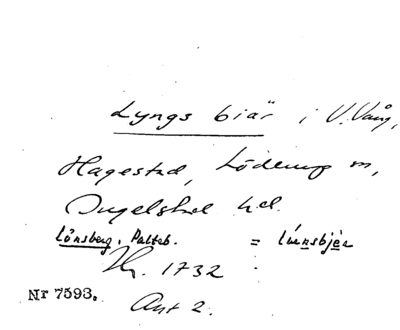 Lyngs biär i V. Vång,
Hagestad, Löderup m,
Ingelstad hd.
Lönsberg, Palteb. =
Hy. 1732
Nr 7593.
Akt 2.